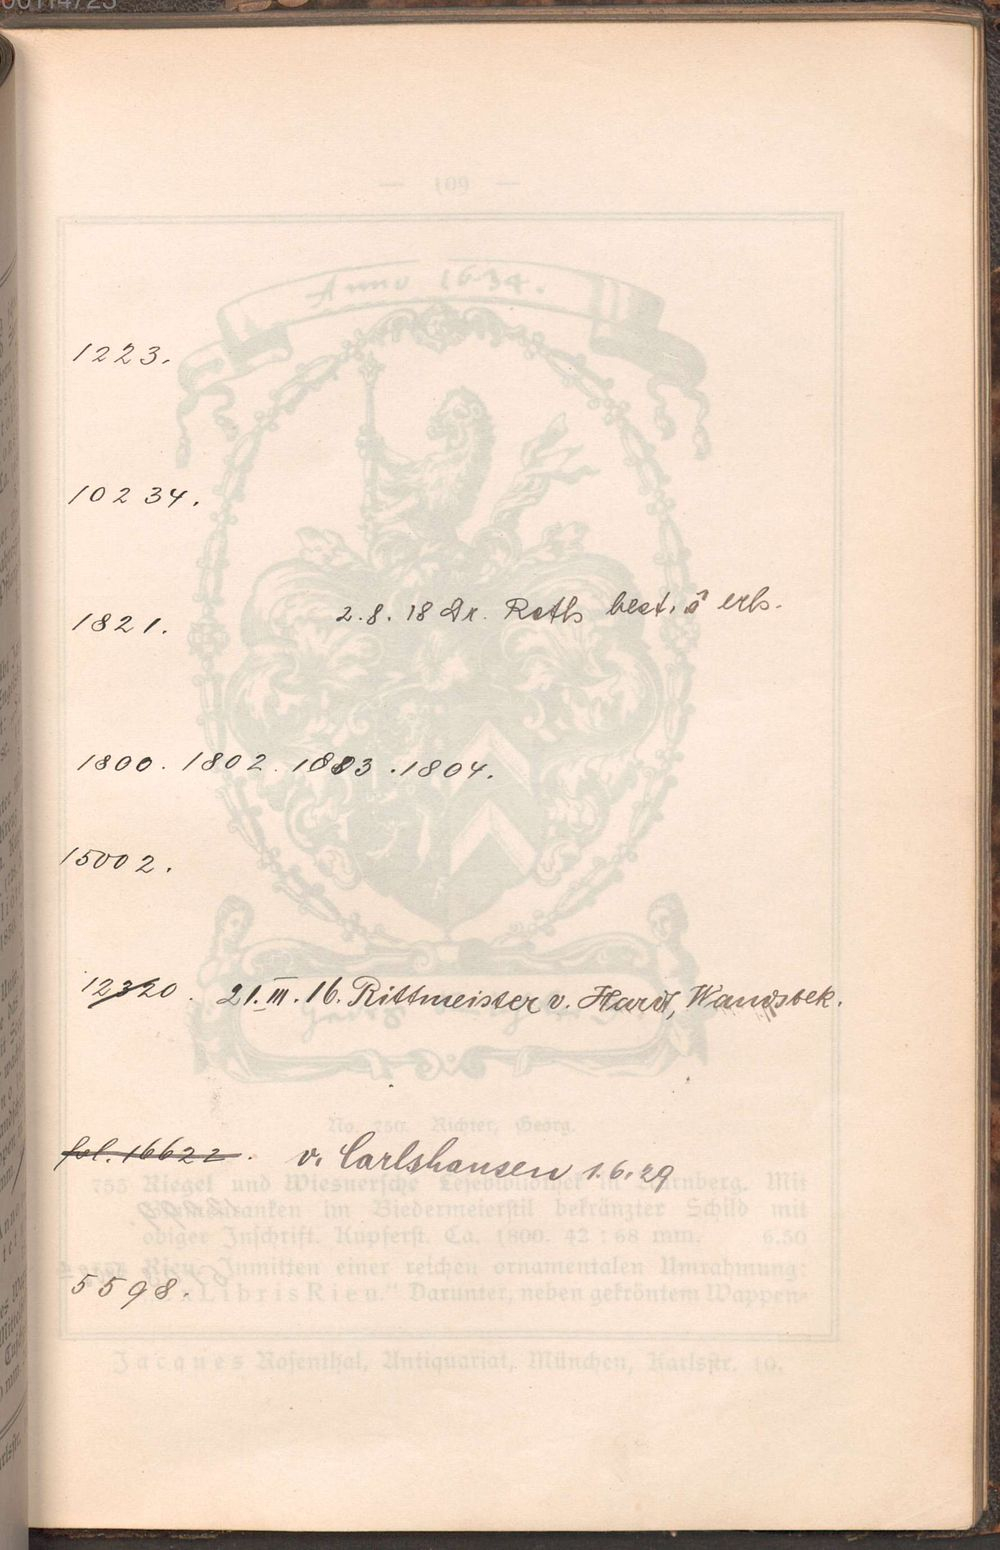 1223.
10234.
1821. 2.8.18 Dr. Roth best. erb.
1800. 1802. 1803. 1804.
15002.
12320. 21.III.16. Rittmeister v. Hardt, Wandsbek.
fol. 16622. v. Carlshausen 1.6.29
5598.